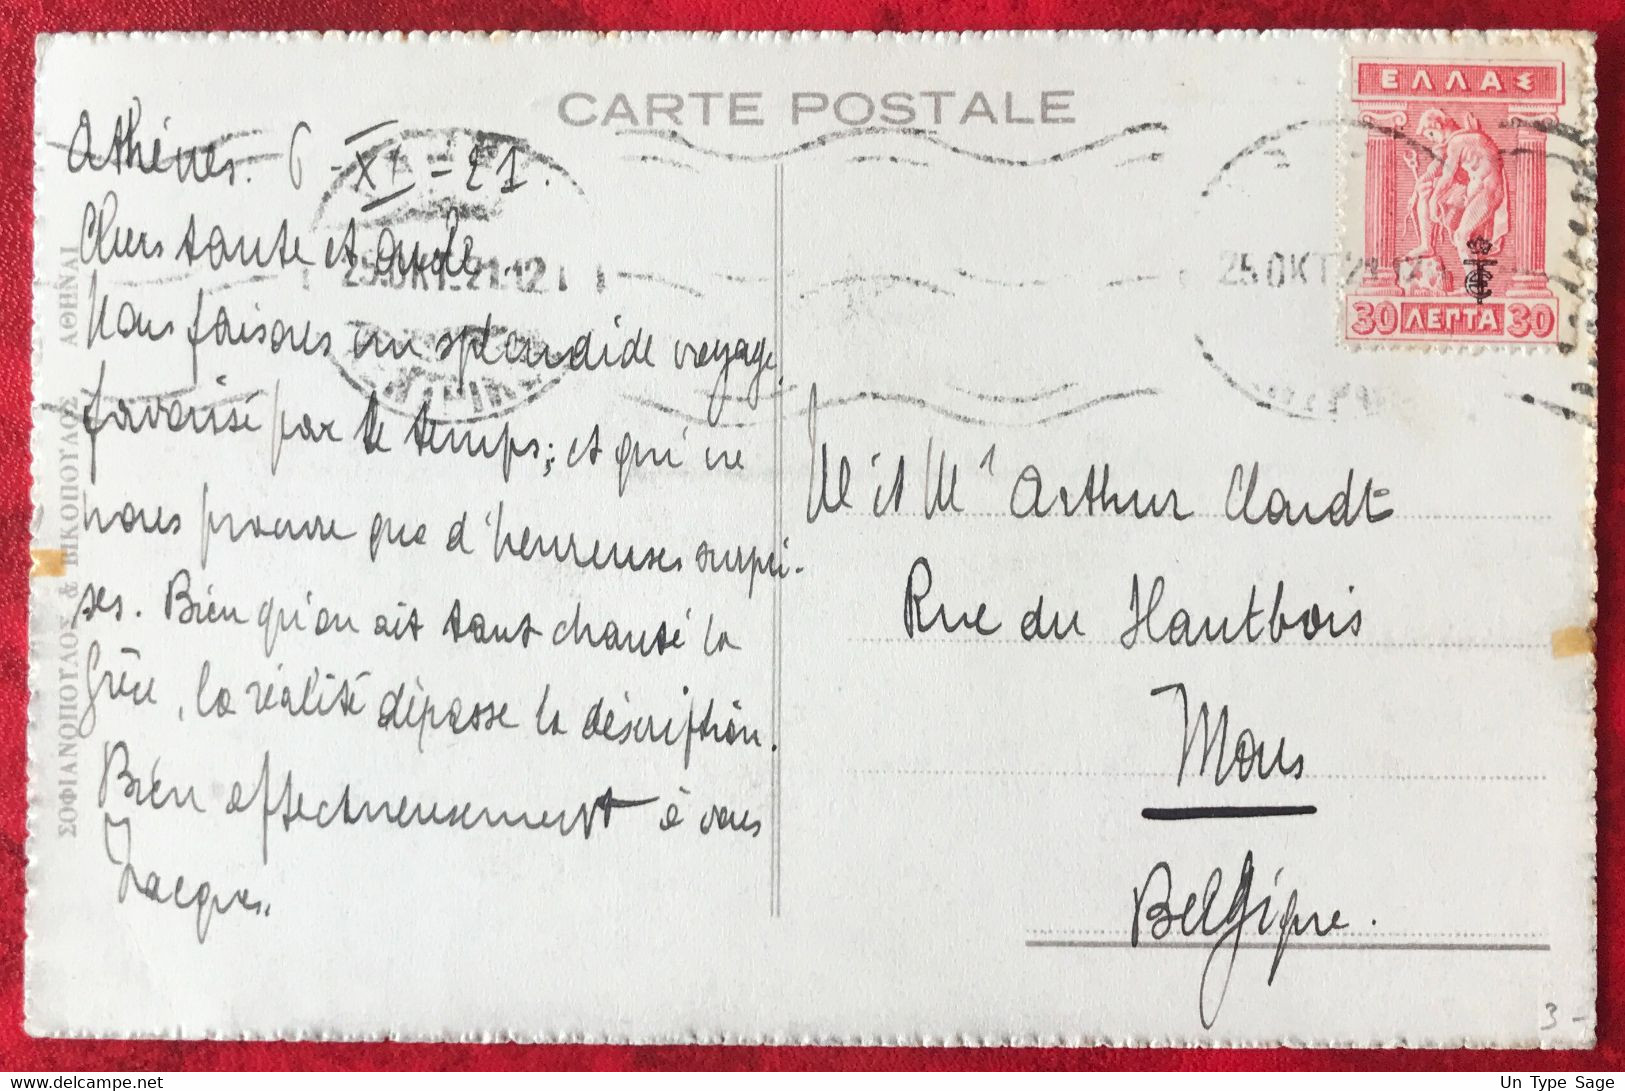 CARTE POSTALE
ΕΛΛΑΣ
30 ΛΕΠΤΑ 30
25 ΟΚΤ 21
25.ΟΚΤ.21.12
Athènes. 6-XI=21.
Chers tante et oncle
Nous faisons un splendide voyage,
favorisé par le temps; et qui ne
nous procure que d'heureuses surpri-
ses. Bien qu'on ait tant chanté la
Grèce, la réalité dépasse la déscription.
Bien affectueusement à vous
Jacques.
M et Mᵉ Arthur Claudt
Rue du Hautbois
Mons
Belgique.
ΣΟΦΙΑΝΟΠΟΥΛΟΣ & ΒΙΚΟΠΟΥΛΟΣ ΑΘΗΝΑΙ
3-
Un Type Sage
delcampe.net